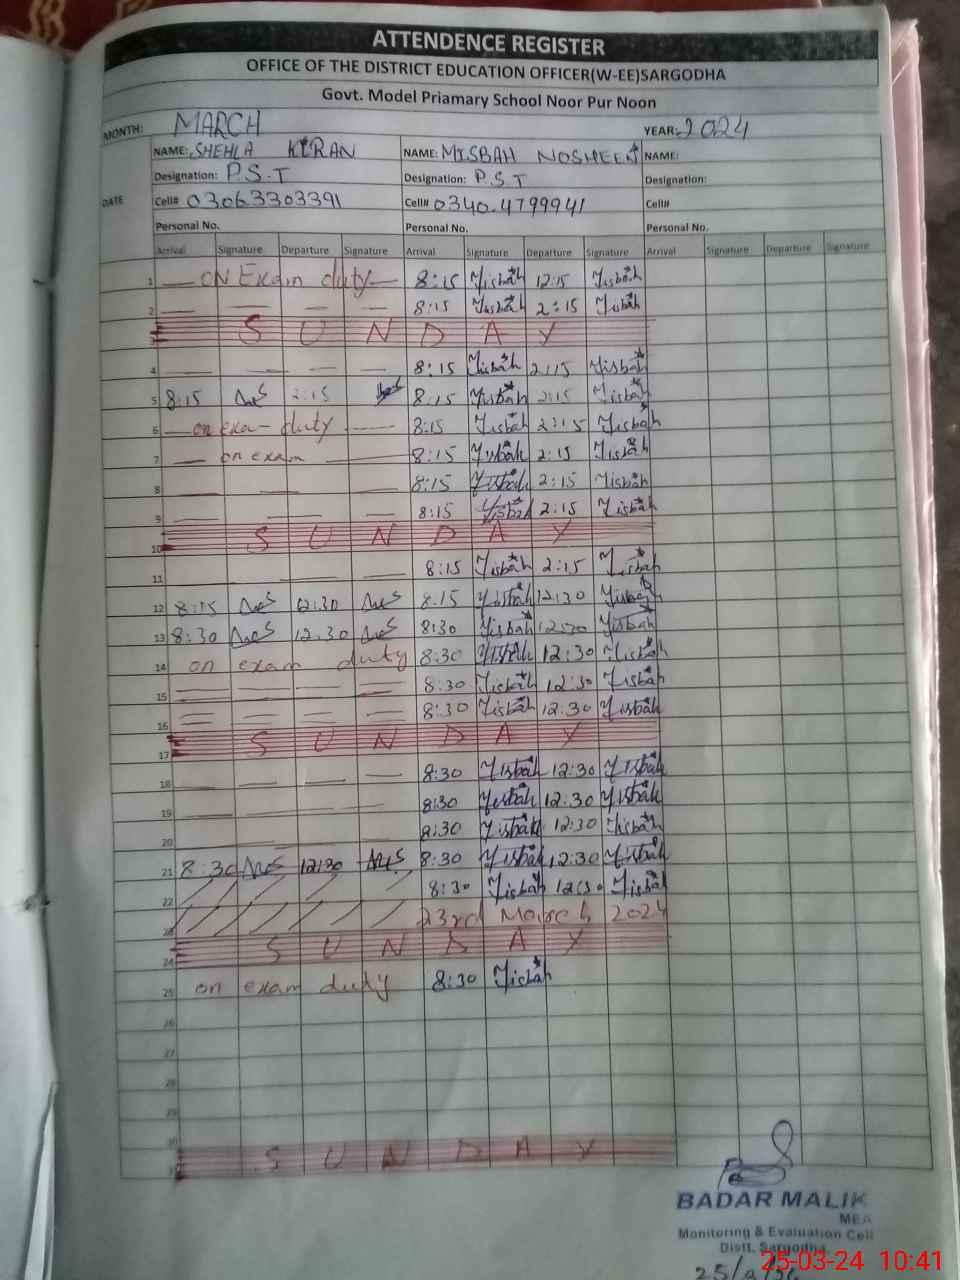 ATTENDENCE REGISTER
OFFICE OF THE DISTRICT EDUCATION OFFICER(W-EE)SARGODHA
Govt. Model Priamary School Noor Pur Noon
MONTH: MARCH YEAR: 2024
NAME: SHEHLA KIRAN NAME: MISBAH NOSHEEN NAME:
Designation: P.S.T Designation: P.S T Designation:
DATE Cell# 03063303391 Cell# 0340.4799941 Cell#
Personal No. Personal No. Personal No.
Arrival Signature Departure Signature Arrival Signature Departure Signature Arrival Signature Departure Signature
1 — ON Exam duty — 8:15 Misbah 12:15 Misbah
2 — — — — 8:15 Misbah 2:15 Misbah
S U N D A Y
4 — — — — 8:15 Misbah 2:15 Misbah
5 8:15 2:15 8:15 Misbah 2:15 Misbah
6 — on exa- duty — 8:15 Misbah 2:15 Misbah
7 — on exam — 8:15 Misbah 2:15 Misbah
8 — — — — 8:15 Misbah 2:15 Misbah
9 — — — — 8:15 Misbah 2:15 Misbah
10 S U N D A Y
11 — — 8:15 Misbah 2:15 Misbah
12 8:15 12:30 8:15 Misbah 12:30 Misbah
13 8:30 12.30 8:30 Misbah 12:30 Misbah
14 on exam duty 8:30 Misbah 12:30 Misbah
15 8:30 Misbah 12:30 Misbah
16 8:30 Misbah 12:30 Misbah
17 S U N D A Y
18 — — — — 8:30 Misbah 12:30 Misbah
19 — — — — 8:30 Misbah 12:30 Misbah
20 — — — — 8:30 Misbah 12:30 Misbah
21 8:30 12:30 8:30 Misbah 12:30 Misbah
22 8:30 Misbah 12:30 Misbah
23 23rd March 2024
24 S U N D A Y
25 on exam duty 8:30 Misbah
26
27
28
29
30
S U N D A Y
BADAR MALIK
MEA
Monitoring & Evaluation Cell
Distt. Sargodha
25-03-24 10:41